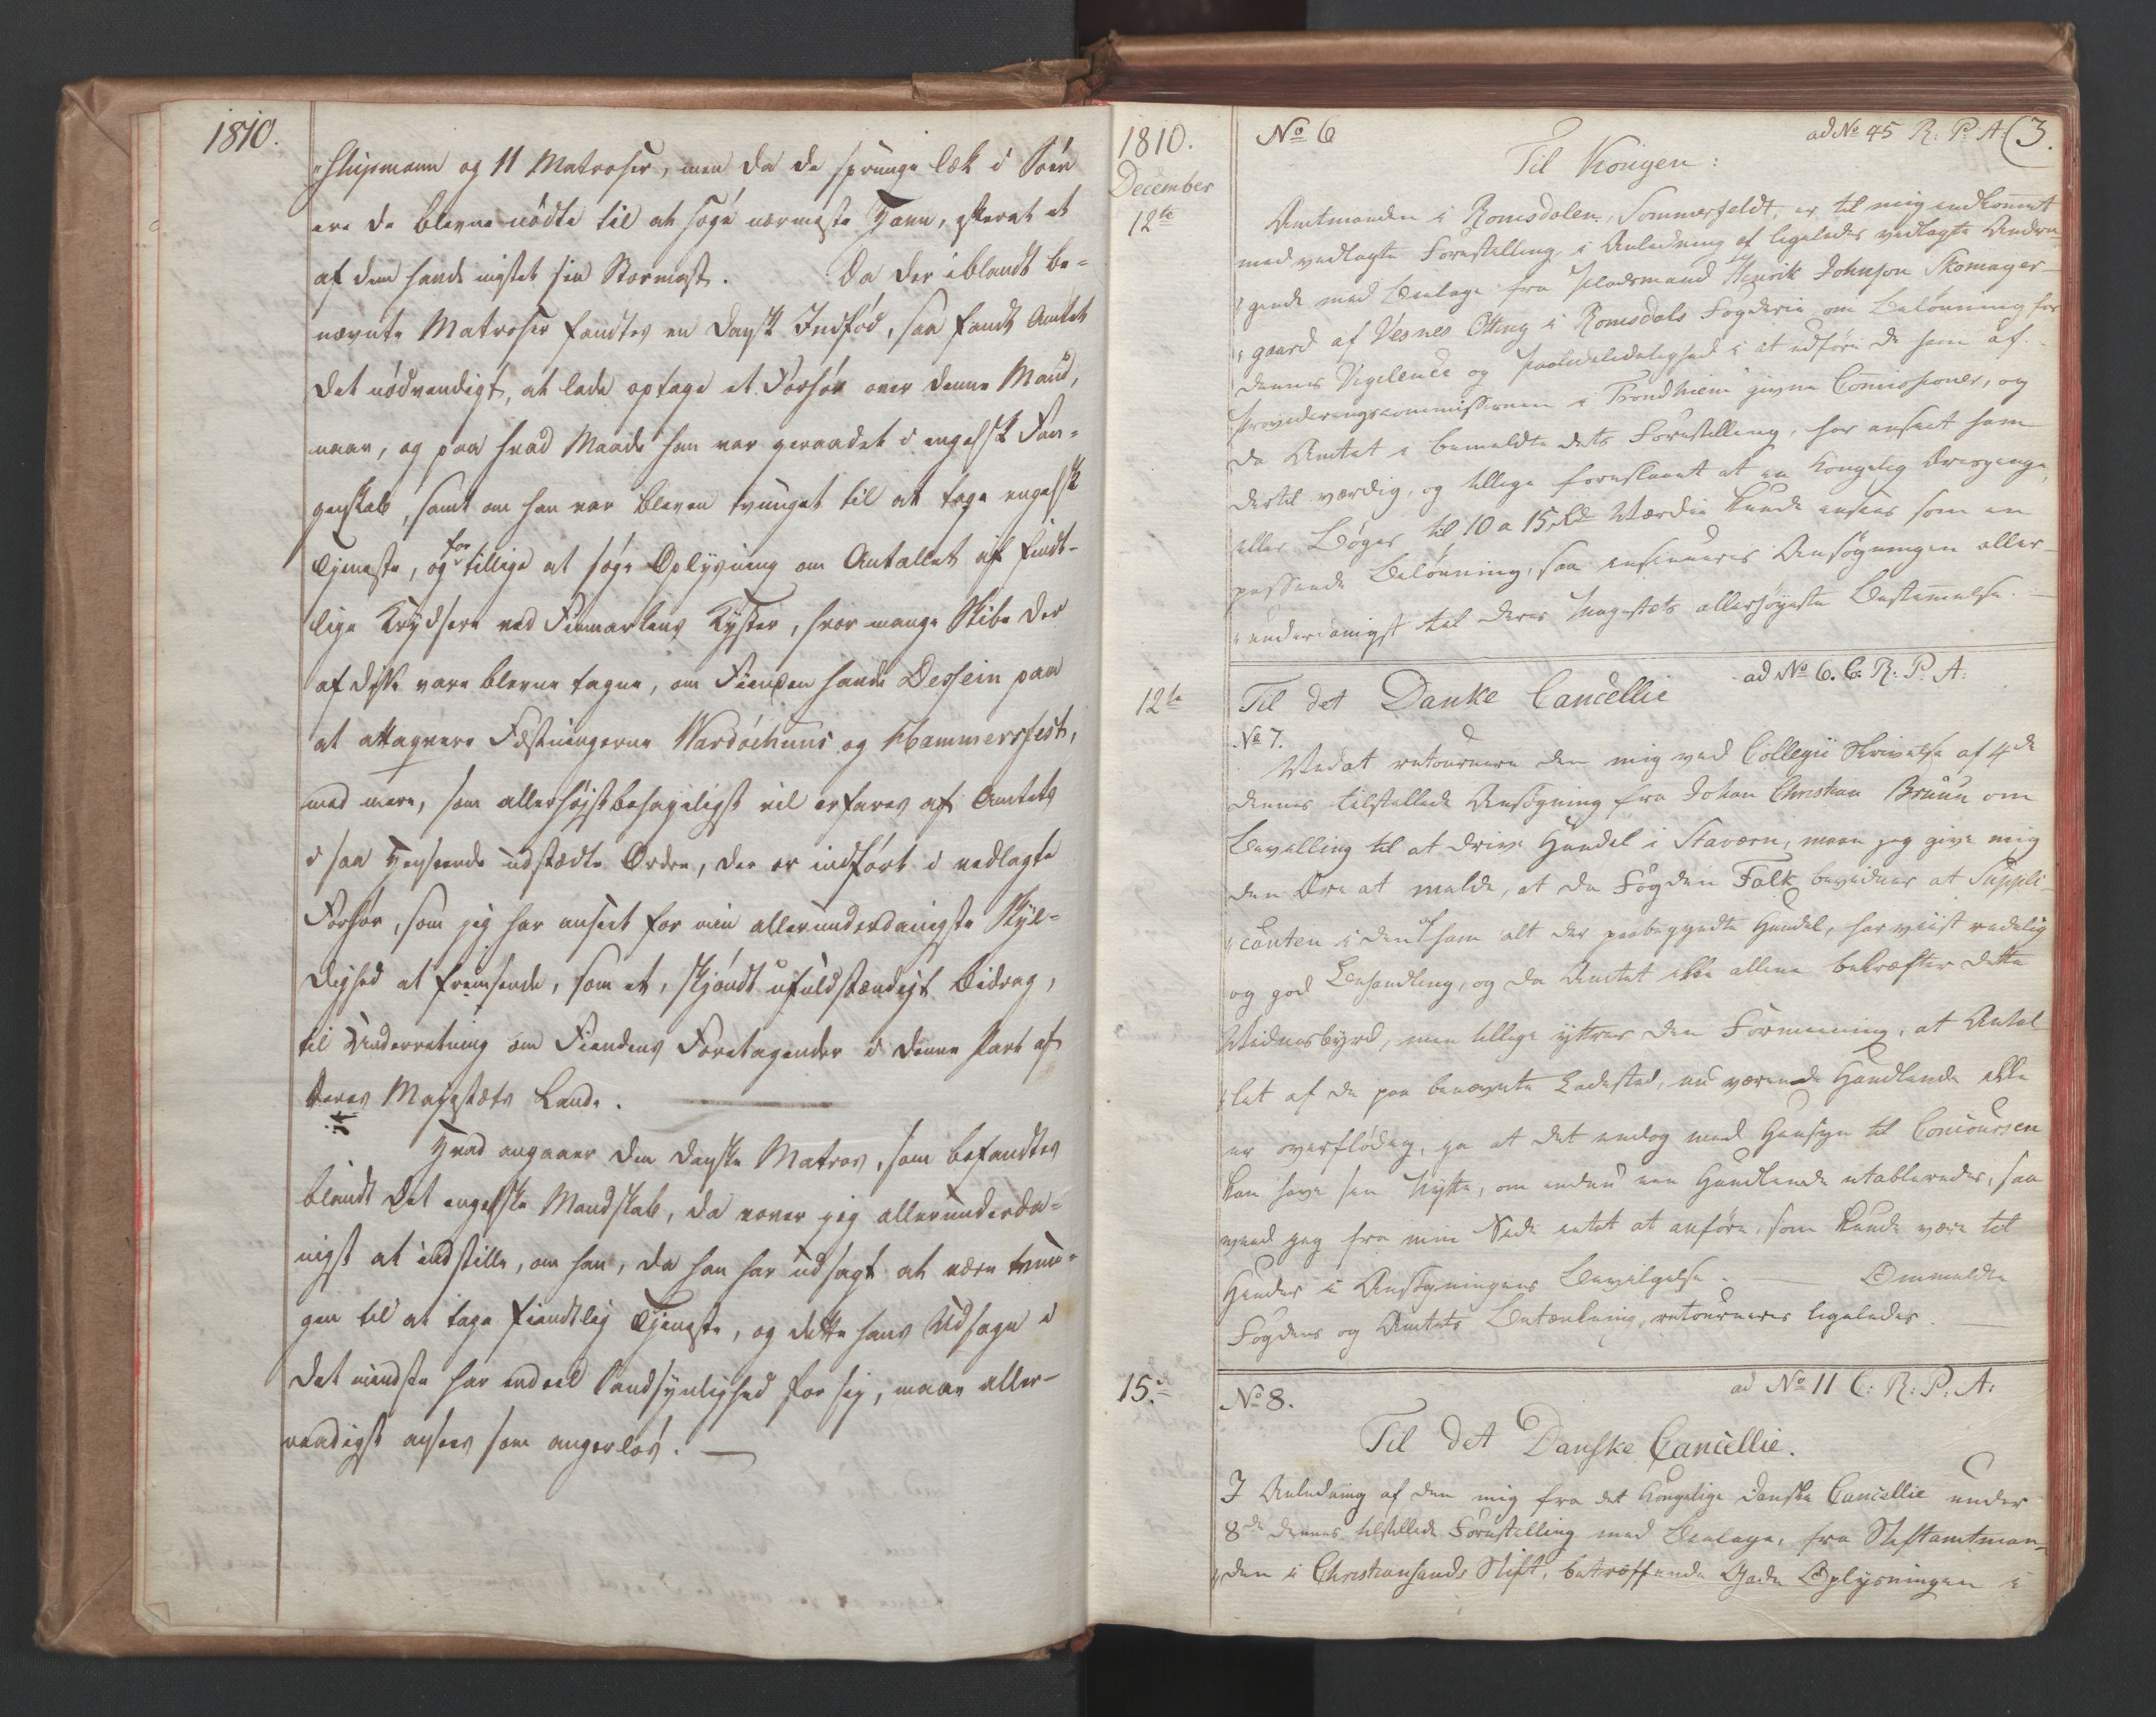 1810.
„Shipmann og 11 Matroser, men da de sprunge læk i Søen
ere de blevne nødte til at søge nærmeste Havn, efterat et
af dem havde mistet sin Stormast. Da der iblandt be-
nævnte Matroser fandtes en dansk Indfød, saa fandt Amtet
det nødvendigt, at lade optage et Forhør over denne Mand,
naar, og paa hvad Maade han var geraadet i engelsk Fan-
genskab, samt om han var bleven tvunget til at tage engelsk
Tjeneste, og for tillige at søge Oplysning om Antallet af fiendt-
lige Krydsere ved Finmarkens Kyster, hvor mange Skibe der
af disse vare blevne tagne, om Fienden havde Dessein paa
at attaqvere Fæstningerne Wardöehuus og Hammersfest,
med mere, som allerhøjstbehageligst vil erfares af Amtets
i saa Henseende udstædte Ordre, der er indført i vedlagte
Forhør, som jeg har anseet for min allerunderdanigste Skyl-
dighed at fremsende, som et, skjøndt ufuldstændigt Bidrag,
til Underretning om Fiendens Foretagender i denne Part af
Deres Majestæts Lande.
Hvad angaaer den danske Matros, som befandtes
blandt det engelske Mandskab, da vover jeg allerunderda-
nigst at indstille, om han, da han har udsagt at være tvun-
gen til at tage fiendtlig Tjeneste, og dette hans Udsagn i
det mindste har endeel Sandsynlighed for sig, maae aller-
naadigst ansees som angerløs.
1810.
December
12te
No 6
ad No 45 R: P: A: (3.
Til Kongen:
Amtmanden i Romsdalen, Sommerfeldt, er til mig indkommet
med vedlagte Forestilling, i Anledning af ligeledes vedlagte Andra-
„gende med Bielage fra Pladsmand Henrik Johnson Skomager-
„gaard af Vesnes Otting i Romsdals Fogderie om Belønning for
dennes Vigilence og Paalidelighed i at udføre de ham af
Provideringscommissionen i Trondhiem givne Comissioner, og
da Amtet i bemeldte dets Forestilling, har anseet ham
dertil værdig, og tillige foreslaaet at en kongelig Ærespenge,
eller Bæger til 10 a 15 Rd Værdie kunde ansees som en
passende Belønning, saa insinueres Ansøgningen aller-
„underdanigst til Deres Majestæts allerhøyeste Bestemmelse.
12te
ad No 6. C. R. P. A:
Til det Danke Cancellie
No 7.
Ved at retournere den mig ved Collegii Skrivelse af 4de
dennes tilstillede Ansøgning fra Johan Christian Bruun om
Bevilling til at drive Handel i Stavern, maae jeg give mig
den Ære at melde, at da Fogden Falk bevidner at Suppli-
„canten i den af ham alt der paabegyndte Handel, har viist redelig
og god Behandling, og da Amtet ikke allene bekræfter dette
Vidnesbyrd, men tillige yttrer den Formening, at Antal-
„let af de paa benævnte Ladested, nu værende Handlende ikke
er overflødig, ja at det endog med Hensyn til Concoursen
kan have sin Nytte, om endnu een Handlende etableredes, saa
veed jeg fra min Side intet at anføre, som kunde være til
Hinder i Ansøgningens Bevilgelse. Ommeldte
Fogdens og Amtets Betænkning, retourneres ligeledes.
15.
ad No 11 C: R: P: A:
No 8.
Til det Danske Cancellie.
I Anledning af den mig fra det kongelige danske Cancellie under
8de dennes tilstillede Forestilling med Bielage, fra Stiftamtman-
„den i Christiansands Stift, betræffende Gade Oplysningen i